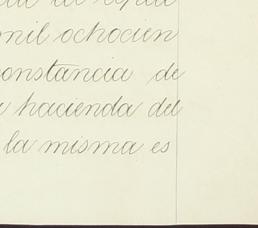 mil ochocien
constancia de
hacienda del
la misma es